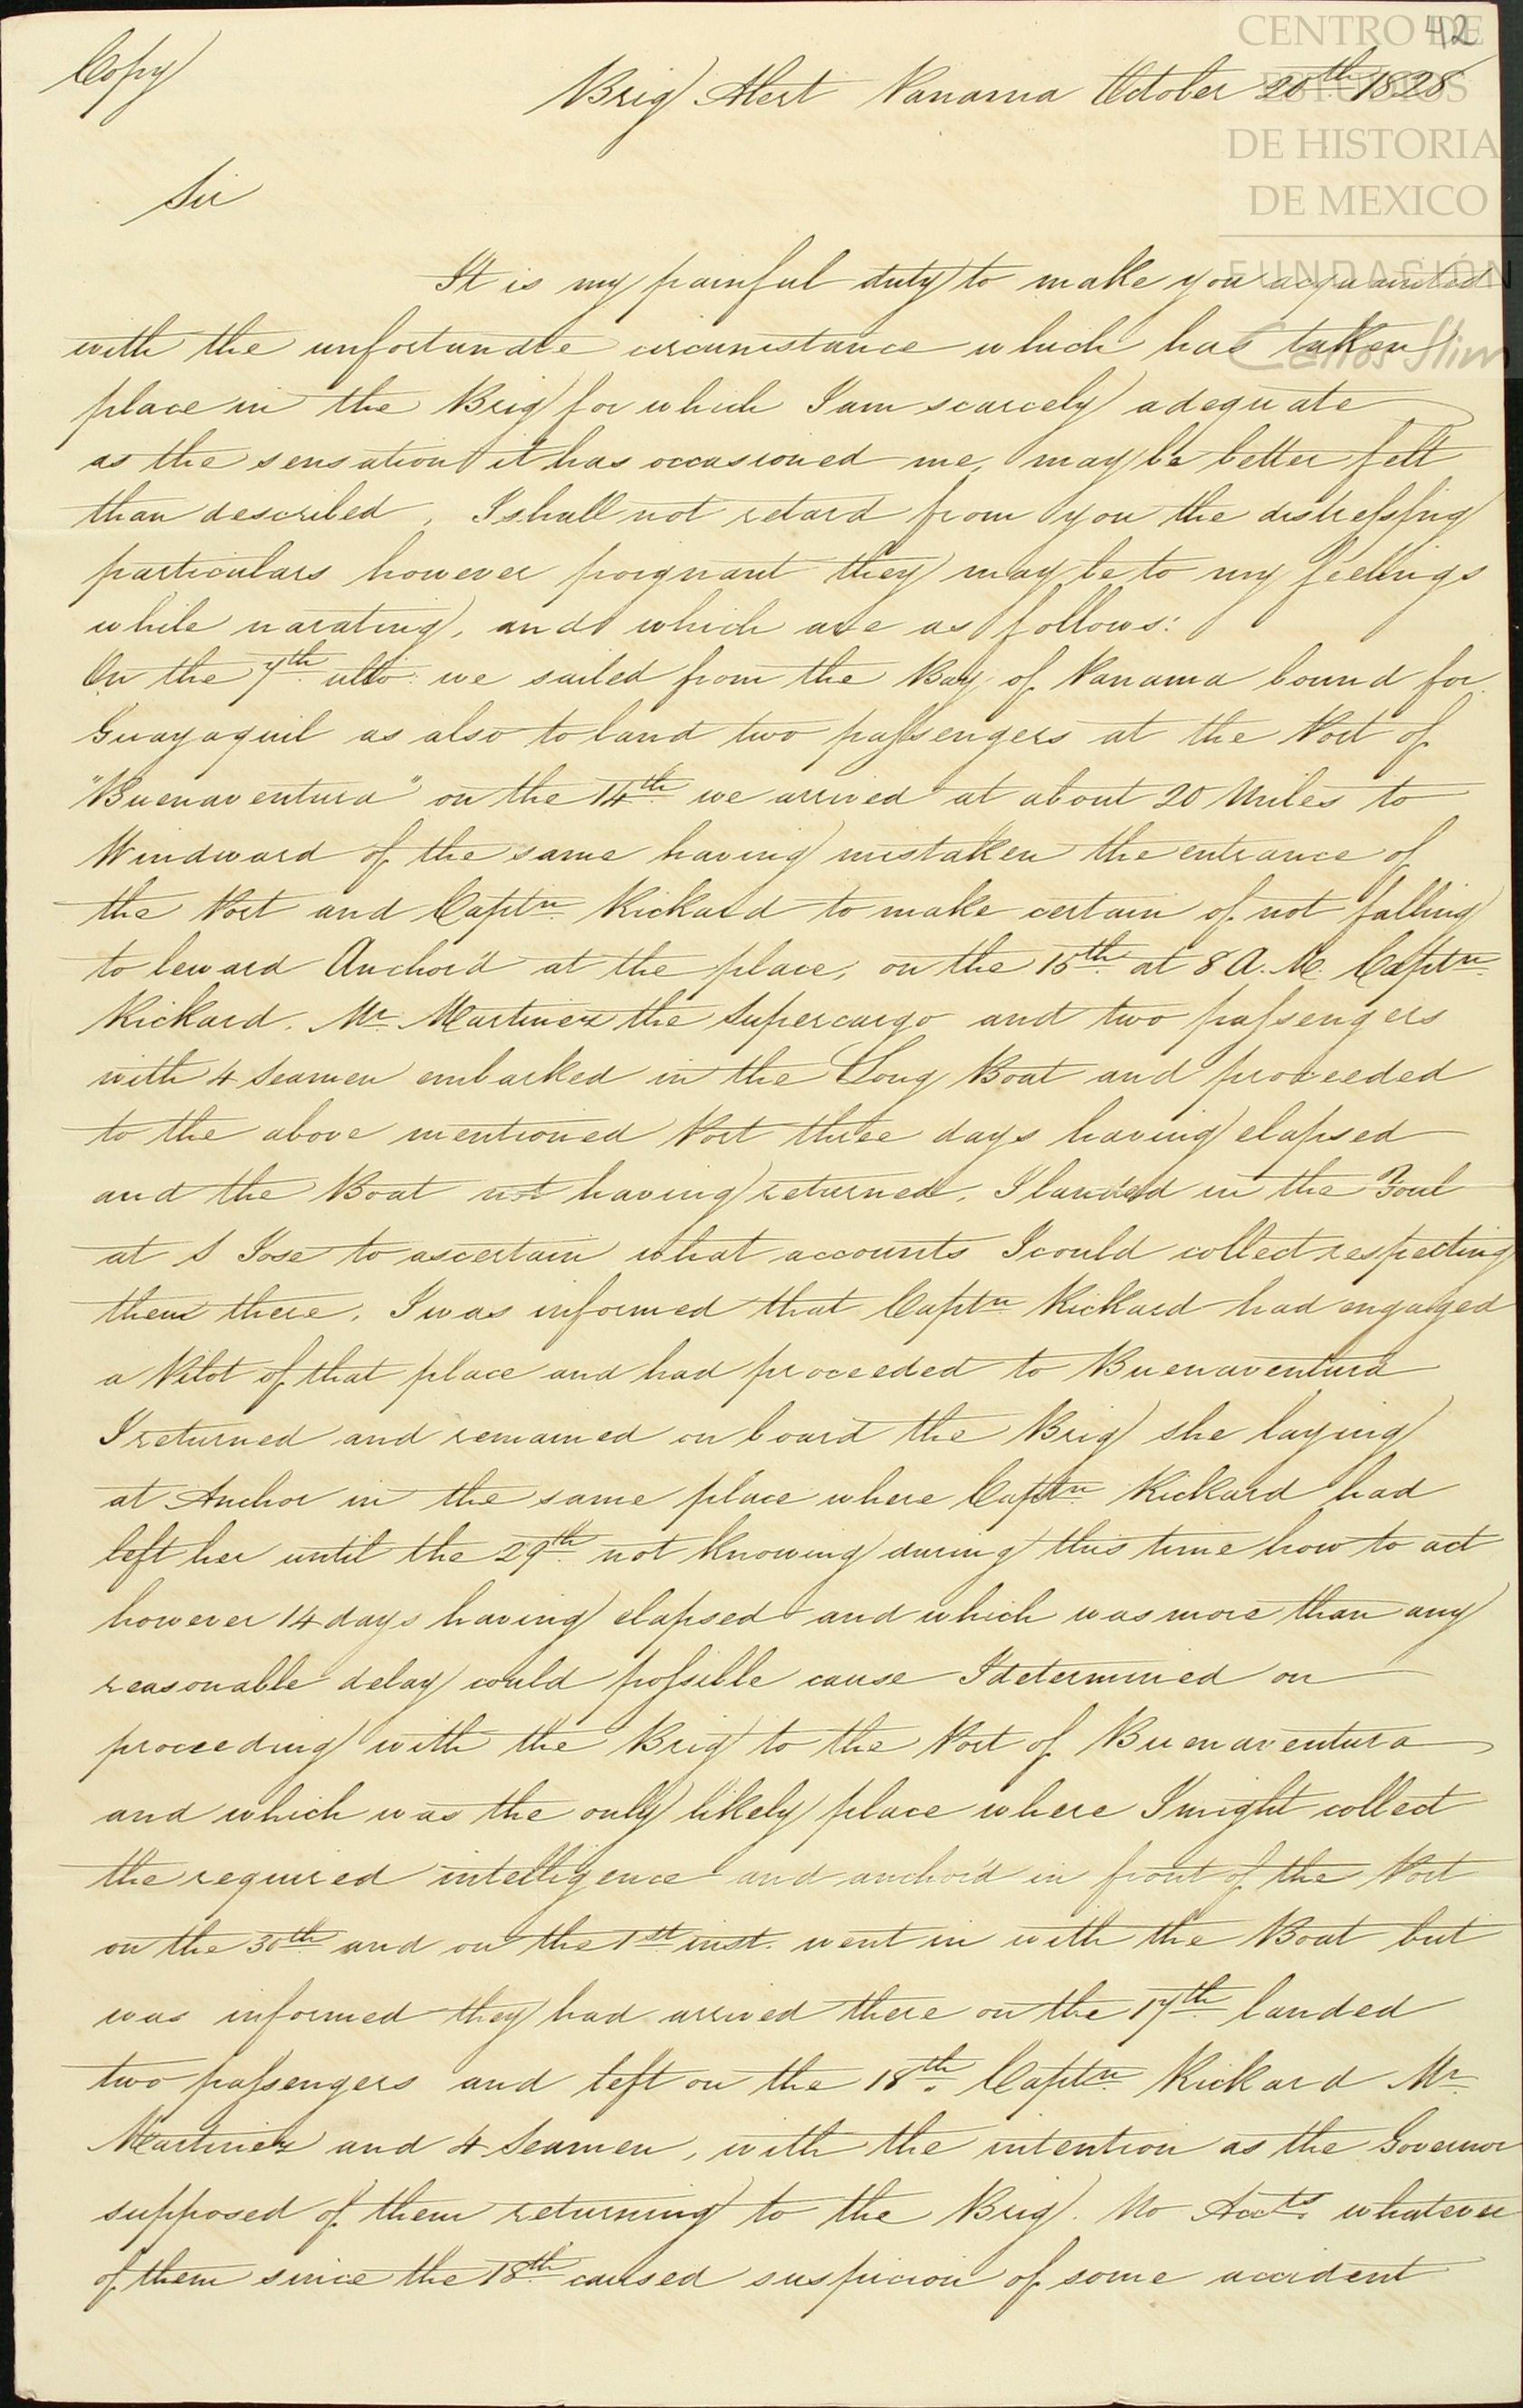 42
CENTRO DE
ESTUDIOS
DE HISTORIA
DE MEXICO
FUNDACIÓN
Carlos Slim
Copy
Brig Alert Panama October 20th 1828
Sir
It is my painful duty to make you acquainted
with the unfortunate circumstance which has taken
place in the Brig for which I am scarcely adequate
as the sensation it has occasioned me, may be better felt
than described, I shall not retard from you the distressing
particulars however poignant they may be to my feelings
while narating, and which are as follows:
On the 7th ulto. we sailed from the Bay of Panama bound for
Guayaquil as also to land two passengers at the Port of
"Buenaventura" on the 14th we arrived at about 20 Miles to
Windward of the same having mistaken the entrance of
the Port and Captn. Rickard to make certain of not falling
to leward Anchor'd at the place, on the 15th at 8 A.M. Captn.
Rickard. Mr. Martinez the Supercargo and two passengers
with 4 Seamen embarked in the Long Boat and proceeded
to the above mentioned Port three days having elapsed
and the Boat not having returned, I landed in the
at S Jose to ascertain what accounts I could collect respecting
them there, I was informed that Captn Rickard had engaged
a Pilot of that place and had proceeded to Buenaventura
I returned and remained on board the Brig she laying
at Anchor in the same place where Captn. Rickard had
left her until the 29th not knowing during this time how to act
however 14 days having elapsed and which was more than any
reasonable delay could possible cause I determined on
proceeding with the Brig to the Port of Buenaventura
and which was the only likely place where I might collect
the required intelligence and anchor'd in front of the Port
on the 30th and on the 1st inst. went in with the Boat but
was informed they had arrived there on the 17th landed
two passengers and left on the 18th. Captn. Rickard Mr.
Martinez and 4 Seamen, with the intention as the Governor
supposed of them returning to the Brig. No Accts. whatever
of them since the 18th caused suspicion of some accident